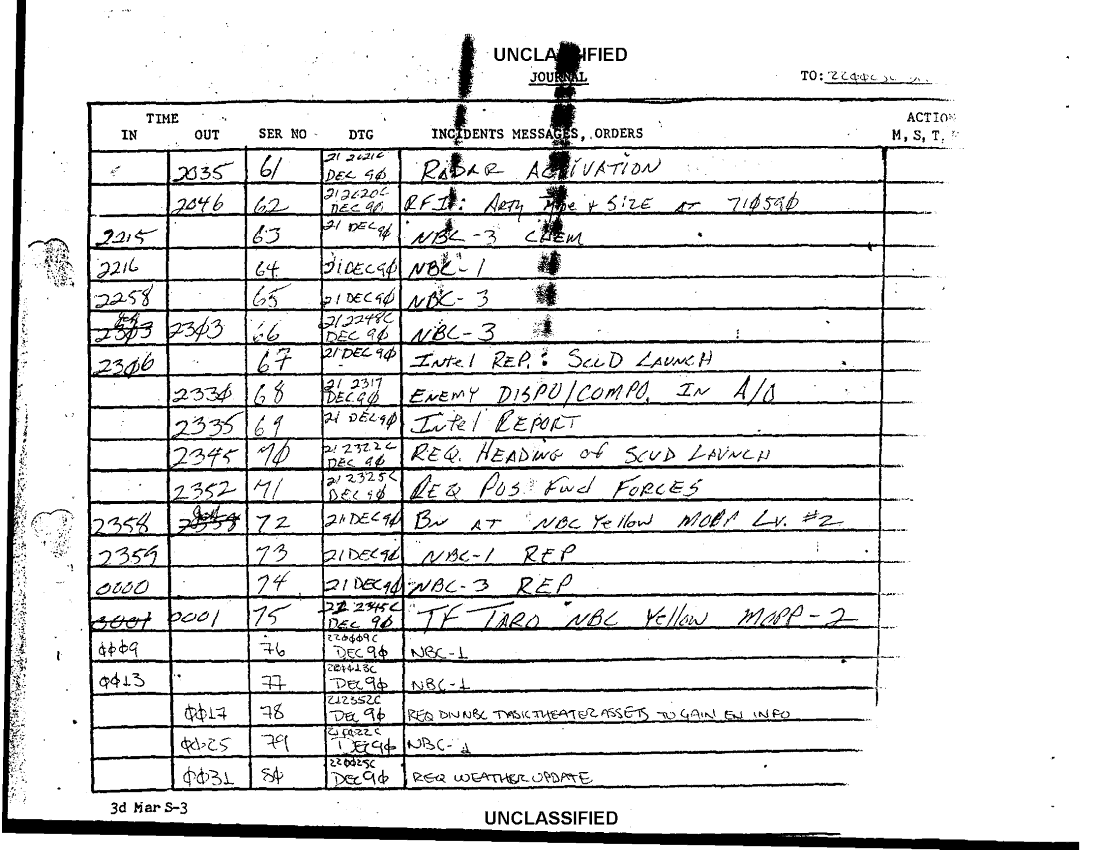 UNCLASSIFIED
JOURNAL
TO:
TIME
IN OUT SER NO DTG INCIDENTS MESSAGES, ORDERS ACTION M, S, T,
2035 61 DEC 9φ RADAR ACTIVATION
2046 62 212020C DEC 9φ RFI: Arty Type + SIZE AT 71φ59φ
2215 63 21 DEC 9φ NBC-3 CHEM
2216 64 21 DEC 9φ NBC-1
2258 65 21 DEC 9φ NBC-3
23φ3 23φ3 66 212248C DEC 9φ NBC-3
23φ6 67 21 DEC 9φ Intel REP: SCUD LAUNCH
233φ 68 21 2317 DEC 9φ ENEMY DISPO/COMPO. IN A/O
2335 69 21 DEC 9φ Intel REPORT
2345 7φ 21 2322C DEC 9φ REQ. HEADING of SCUD LAUNCH
2352 71 21 2325C DEC 9φ REQ POS Fwd FORCES
2358 72 21 DEC 9φ BN AT NBC Yellow MOPP Lv. #2
2359 73 21 DEC 9φ NBC-1 REP
0000 74 21 DEC 9φ NBC-3 REP
0001 0001 75 2345C DEC 9φ TF TARO NBC Yellow MOPP-2
φφφ9 76 22φφφ9C DEC 9φ NBC-1
φφ13 77 DEC 9φ NBC-1
φφ17 78 212352C DEC 9φ REQ DIV NBC TASK THEATER ASSETS TO GAIN EN INFO
φφ25 79 DEC 9φ NBC-1
φφ31 8φ 22φφ25C DEC 9φ REQ WEATHER UPDATE
3d Mar S-3
UNCLASSIFIED